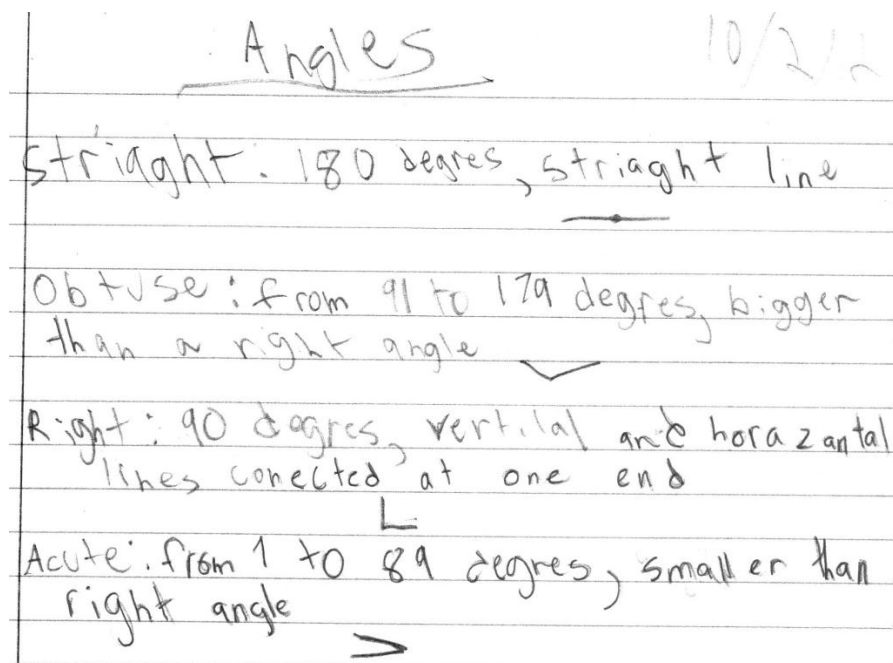 Angles 10/2/2
Striaght: 180 degres, striaght line
Obtuse: from 91 to 179 degres, bigger
than a right angle
Right: 90 degres, vertical and horazantal
lines conected at one end
Acute: from 1 to 89 degres, smaller than
right angle